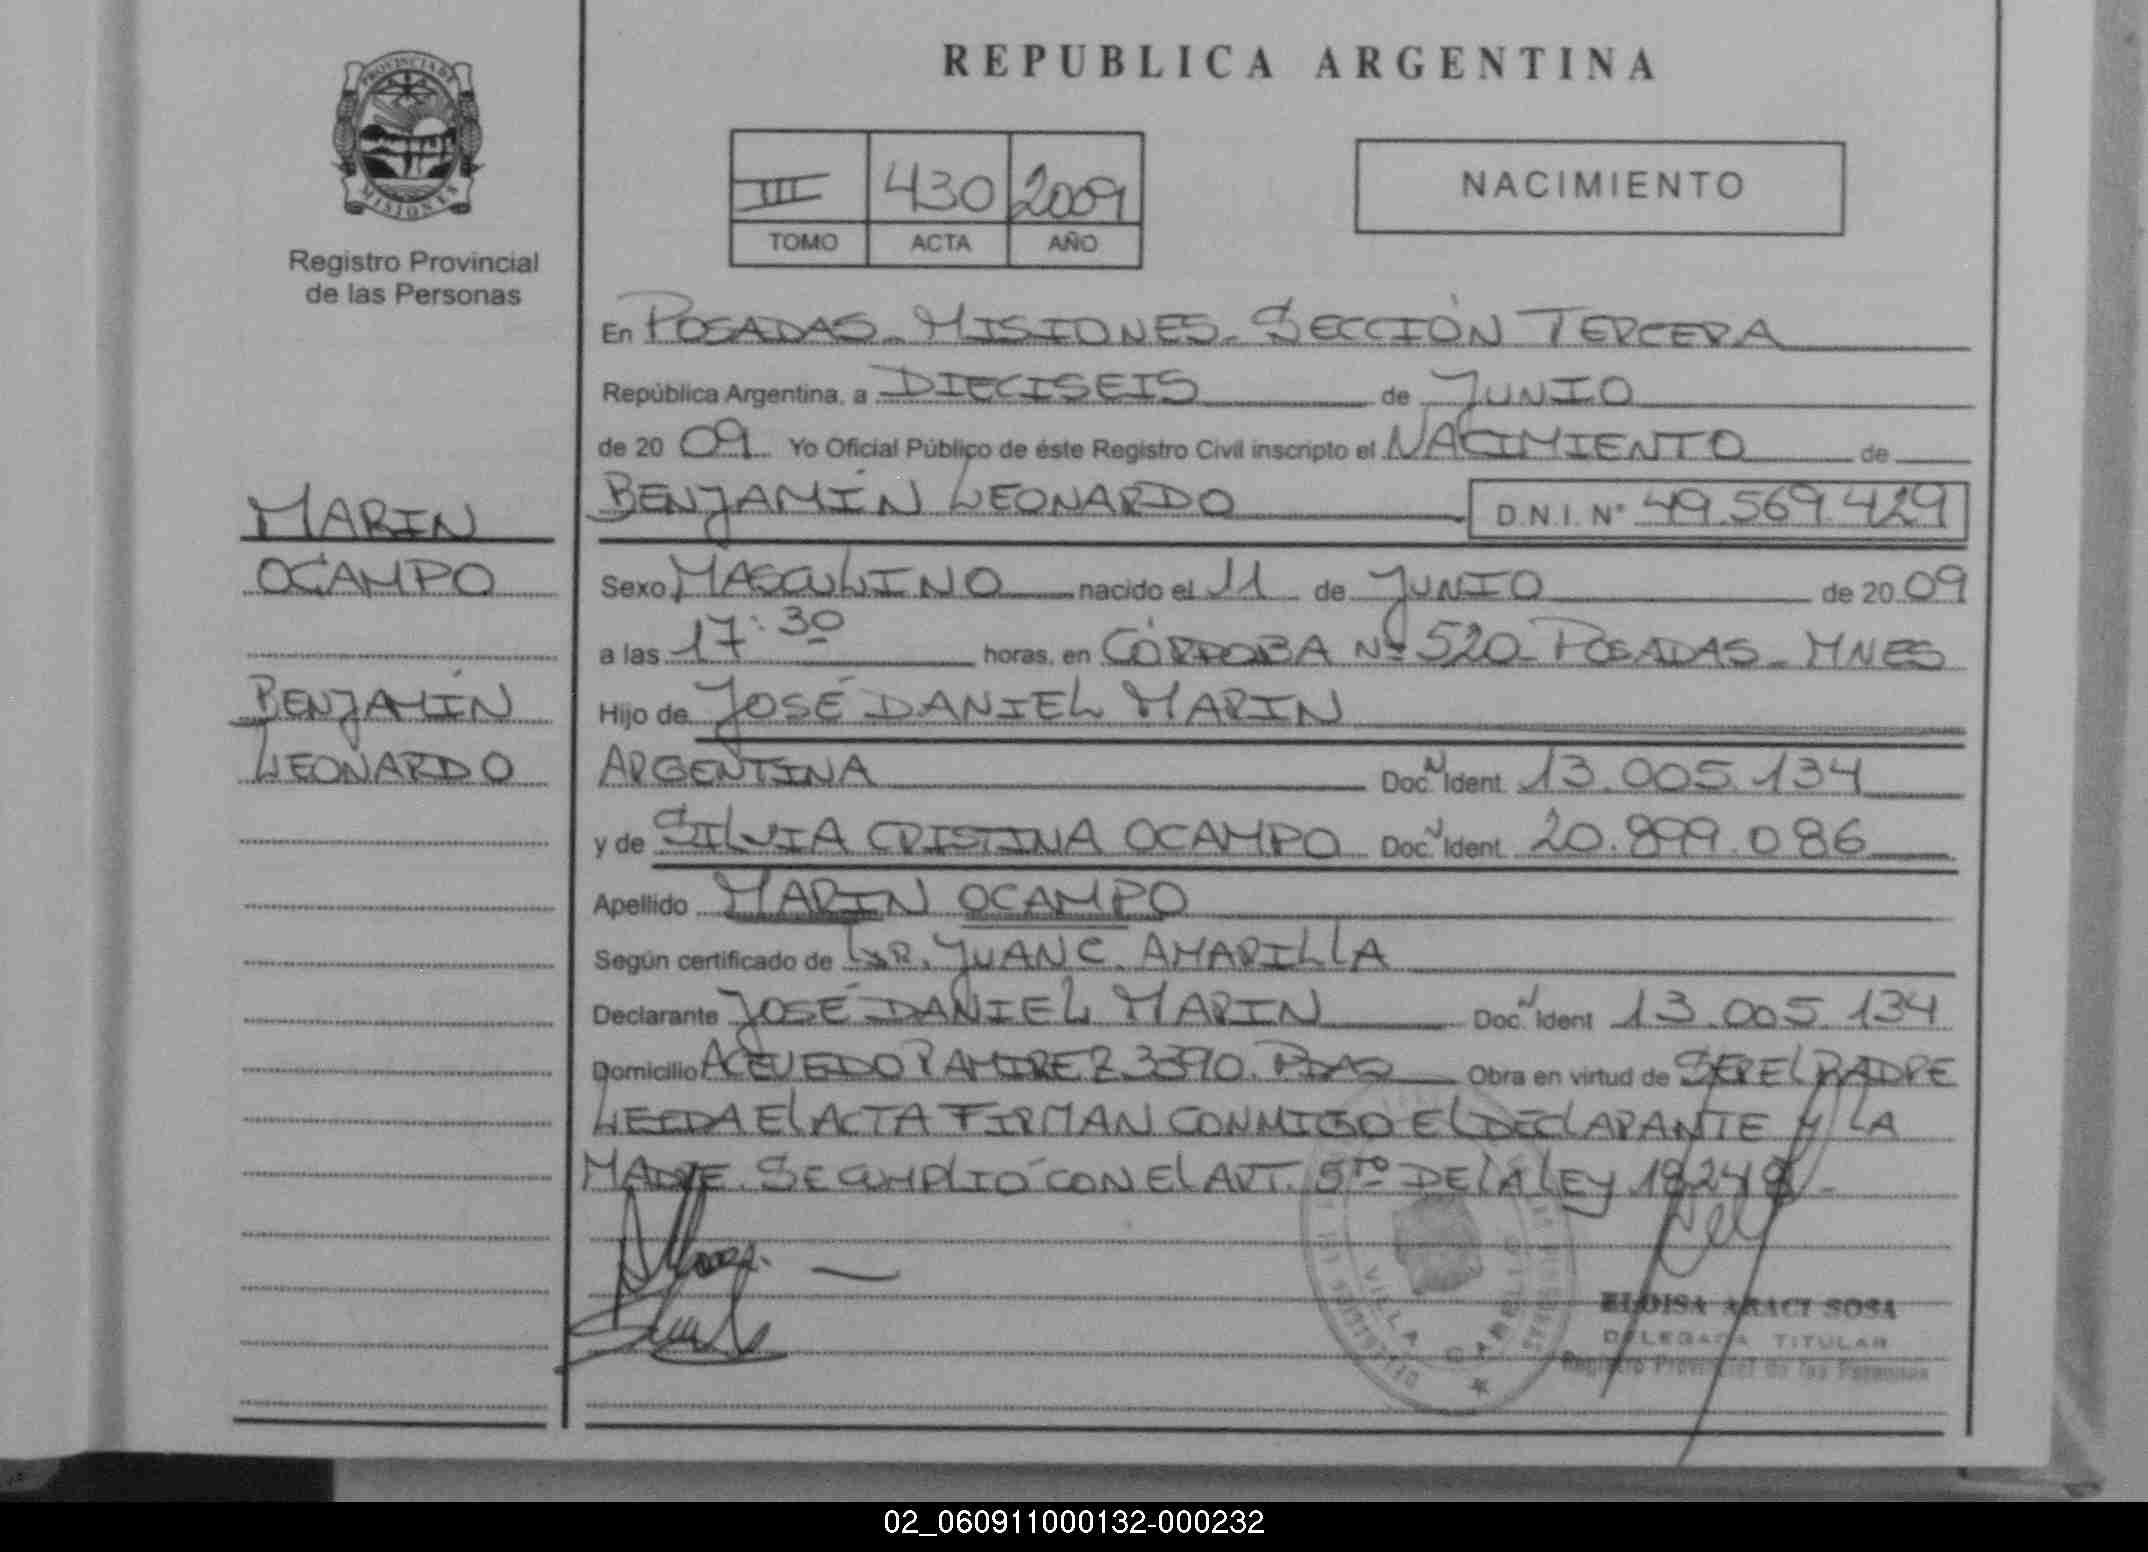 REPUBLICA ARGENTINA
PROVINCIA DE
MISIONES
Registro Provincial
de las Personas
III 430 2009
TOMO ACTA AÑO
NACIMIENTO
En POSADAS - MISIONES - SECCIÓN TERCERA
República Argentina, a DIECISEIS de JUNIO
de 20 09 Yo Oficial Público de éste Registro Civil inscripto el NACIMIENTO de
BENJAMÍN LEONARDO D.N.I. N° 49.569.429
MARIN
OCAMPO
BENJAMÍN
LEONARDO
Sexo MASCULINO nacido el 11 de JUNIO de 20 09
a las 17:30 horas, en CÓRDOBA Nº 520 - POSADAS - MNES
Hijo de JOSÉ DANIEL MARIN
ARGENTINA Doc. N Ident. 13.005.134
y de SILVIA CRISTINA OCAMPO Doc. N Ident. 20.899.086
Apellido MARIN OCAMPO
Según certificado de DR. JUAN C. AMARILLA
Declarante JOSÉ DANIEL MARIN Doc. N Ident 13.005.134
Domicilio ACEVEDO RAMIREZ 3390. PDAS Obra en virtud de SER EL PADRE
LEIDA El ACTA FIRMAN CONMIGO El DEClARANTE Y LA
MADRE. SE CUMPlIÓ CON El ART. 5TO DE lA lEY 18248 -
VILLA CABELLO
ELOISA ARACI SOSA
DELEGADA TITULAR
Registro Provincial de las Personas
02_060911000132-000232